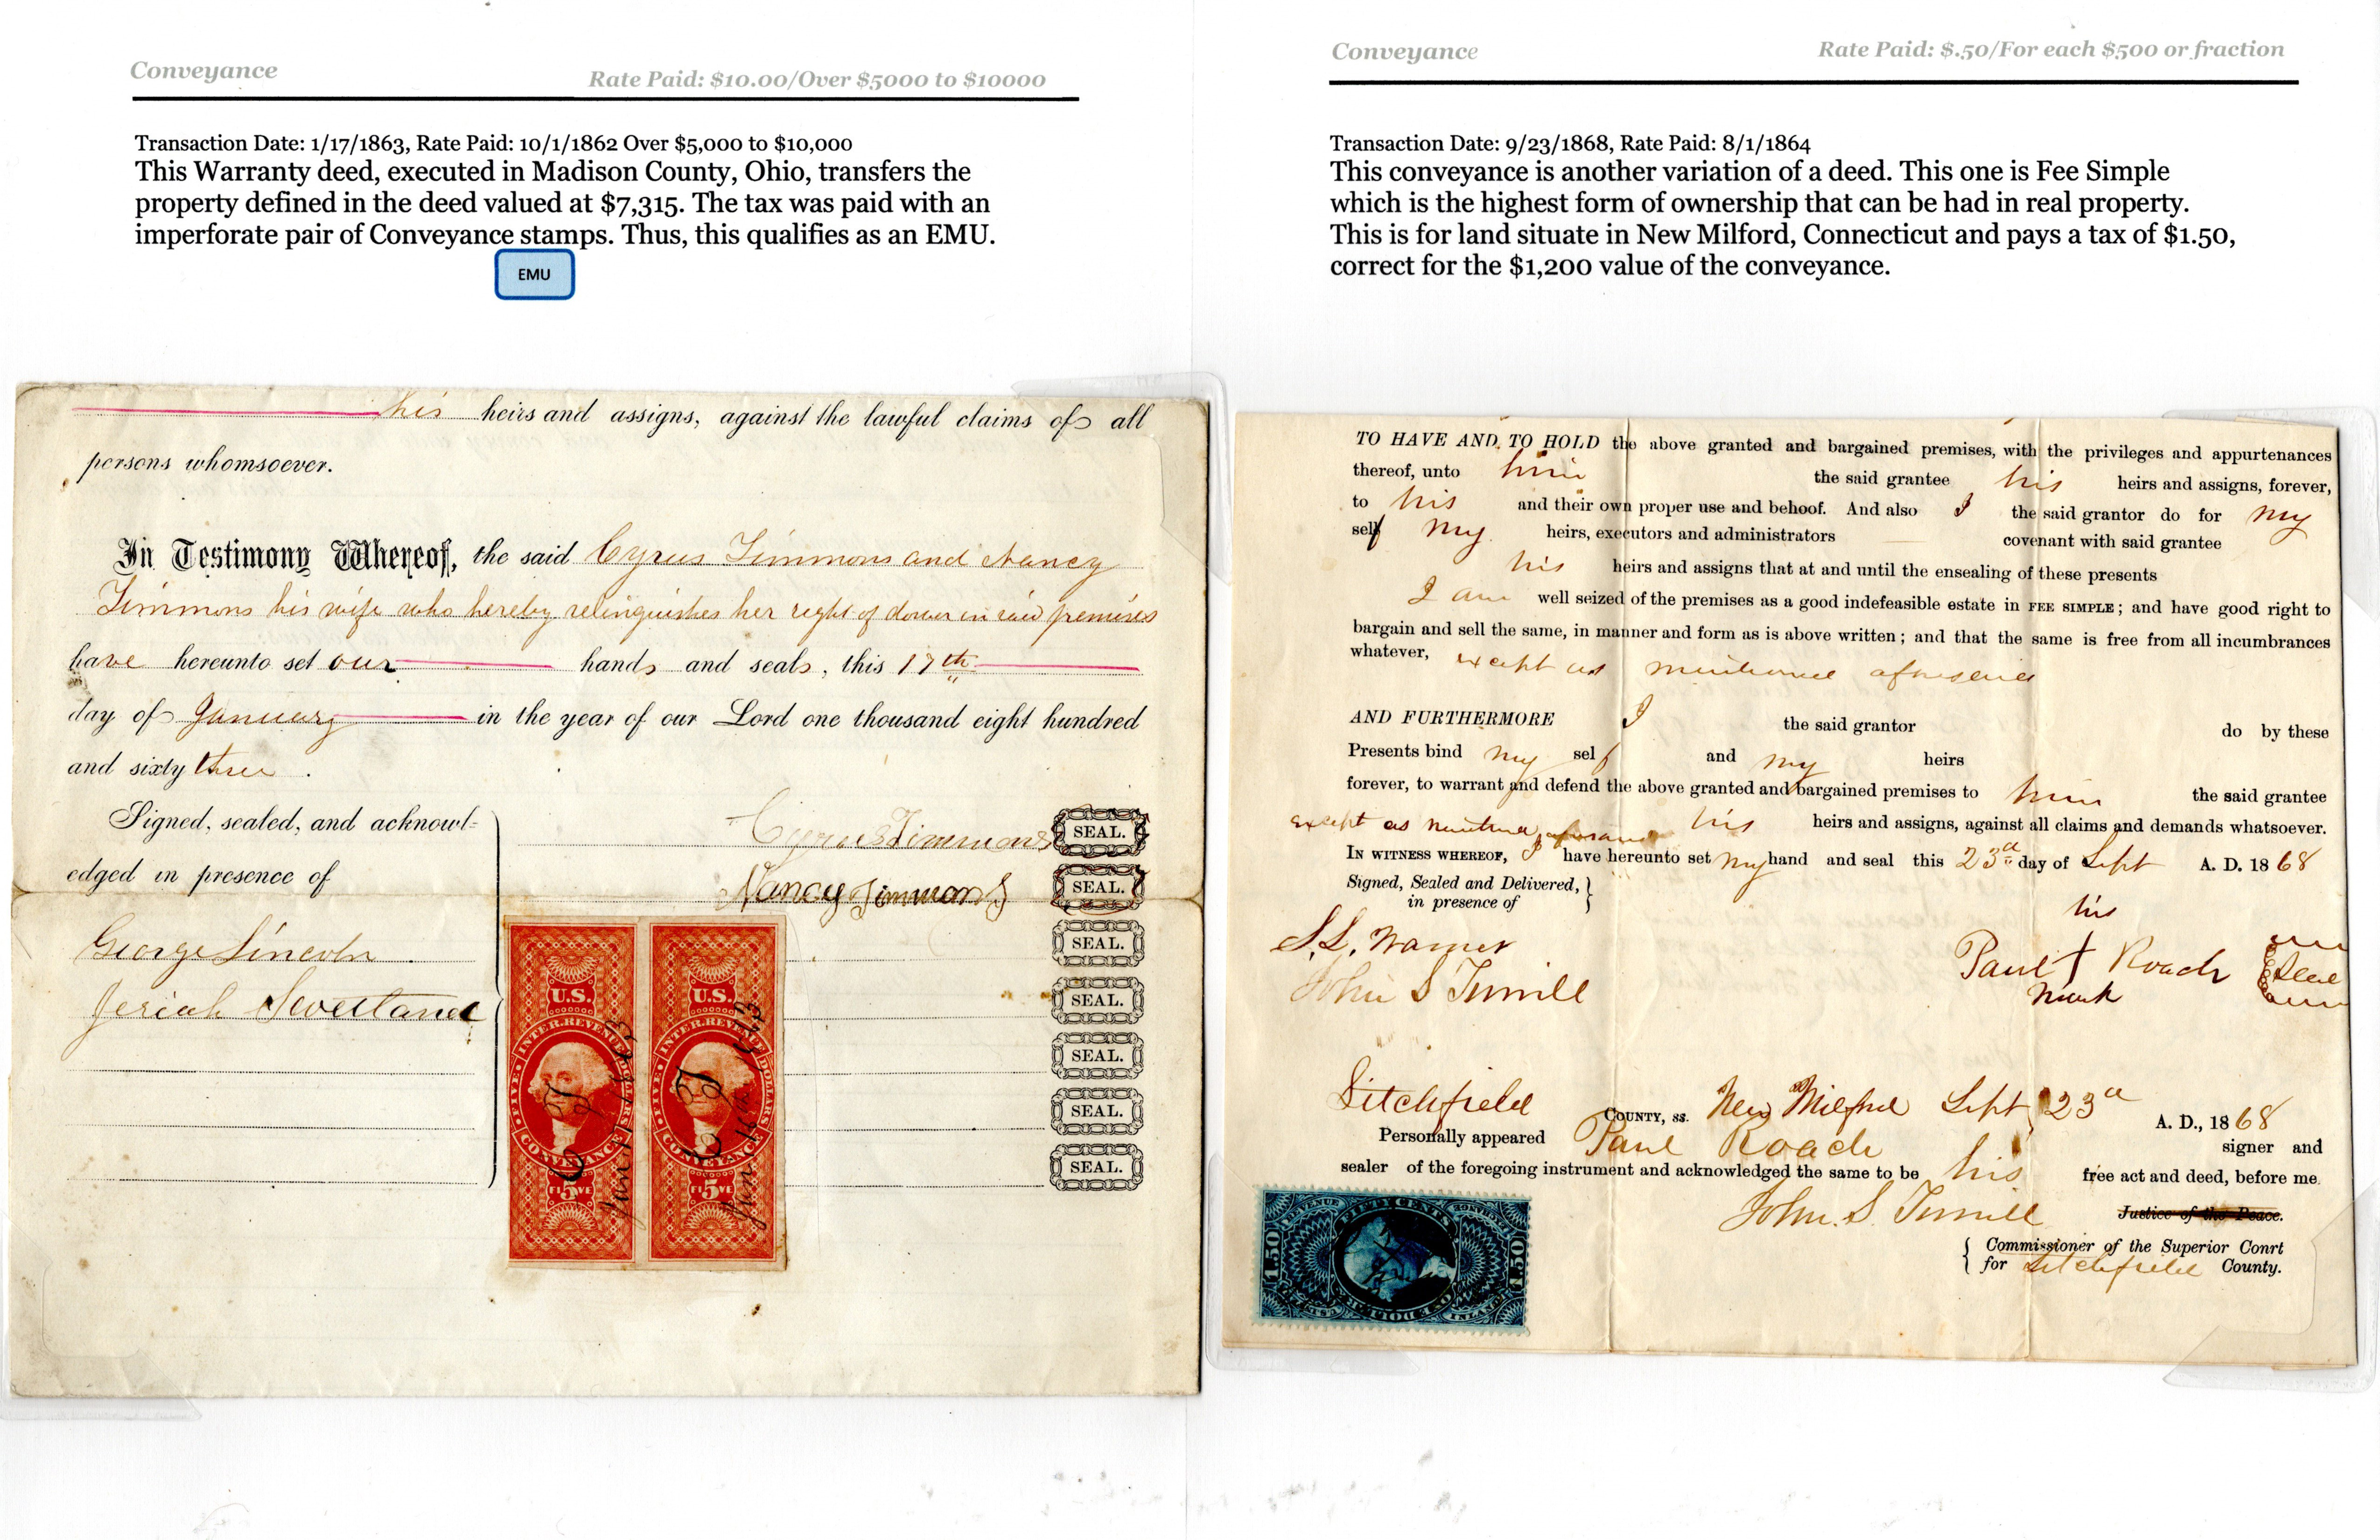 Conveyance
Rate Paid: $10.00/Over $5000 to $10000
Transaction Date: 1/17/1863, Rate Paid: 10/1/1862 Over $5,000 to $10,000
This Warranty deed, executed in Madison County, Ohio, transfers the
property defined in the deed valued at $7,315. The tax was paid with an
imperforate pair of Conveyance stamps. Thus, this qualifies as an EMU.
EMU
his heirs and assigns, against the lawful claims of all
persons whomsoever.
In Testimony Whereof, the said Cyrus Timmons and Nancy
Timmons his wife who hereby relinquishes her right of dower in said premises
have hereunto set our hands and seals, this 17th
day of January in the year of our Lord one thousand eight hundred
and sixty three.
Signed, sealed, and acknowl-
edged in presence of
Cyrus Timmons SEAL.
Nancy Timmons SEAL.
George Lincoln SEAL.
Jeriah Sweetland SEAL.
SEAL.
SEAL.
SEAL.
U.S.
INTER. REVENUE
FIVE DOLLARS
CONVEYANCE
FI 5 VE
C T
Jan 17 1863
U.S.
INTER. REVENUE
FIVE DOLLARS
CONVEYANCE
FI 5 VE
C T
Conveyance
Rate Paid: $.50/For each $500 or fraction
Transaction Date: 9/23/1868, Rate Paid: 8/1/1864
This conveyance is another variation of a deed. This one is Fee Simple
which is the highest form of ownership that can be had in real property.
This is for land situate in New Milford, Connecticut and pays a tax of $1.50,
correct for the $1,200 value of the conveyance.
TO HAVE AND TO HOLD the above granted and bargained premises, with the privileges and appurtenances
thereof, unto him the said grantee his heirs and assigns, forever,
to his and their own proper use and behoof. And also I the said grantor do for my
self my heirs, executors and administrators covenant with said grantee
his heirs and assigns that at and until the ensealing of these presents
I am well seized of the premises as a good indefeasible estate in FEE SIMPLE; and have good right to
bargain and sell the same, in manner and form as is above written; and that the same is free from all incumbrances
whatever, except as mentioned aforesaid
AND FURTHERMORE I the said grantor do by these
Presents bind my self and my heirs
forever, to warrant and defend the above granted and bargained premises to him the said grantee
except as mentioned aforesaid his heirs and assigns, against all claims and demands whatsoever.
IN WITNESS WHEREOF, I have hereunto set my hand and seal this 23d day of Sept A. D. 1868
Signed, Sealed and Delivered,
in presence of
his
S. L. Warner
Paul + Roach Seal
John S Turrill
mark
Litchfield COUNTY, ss. New Milford Sept 23d A. D., 1868
Personally appeared Paul Roach signer and
sealer of the foregoing instrument and acknowledged the same to be his free act and deed, before me.
John S. Turrill Justice of the Peace.
Commissioner of the Superior Conrt
for Litchfield County.
1.50
FIFTY CENTS
ONE DOLLAR
1.50